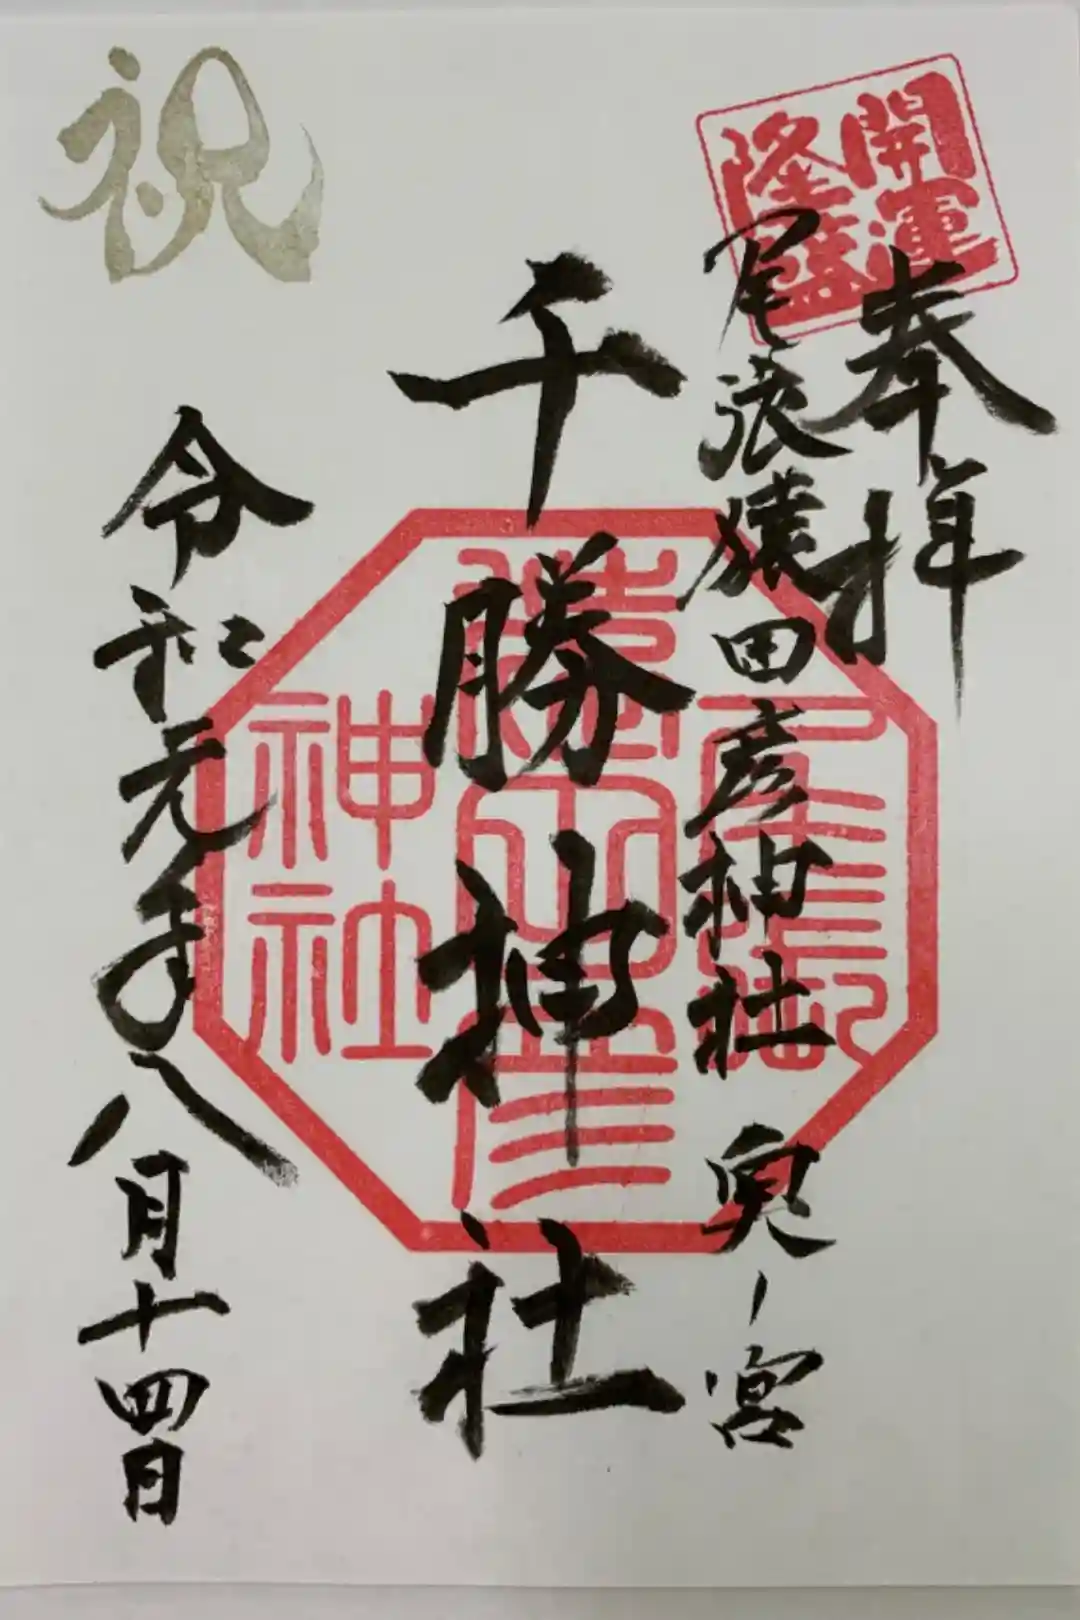 開運
隆盛
奉拝
尾張猿田彦神社 奥ノ宮
千勝神社
神社
祝
令和元年八月十四日